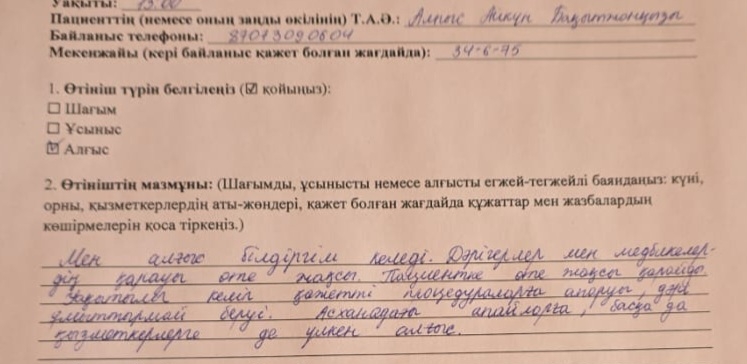 Уақыты: 15.00
Пациенттің (немесе оның заңды өкілінің) Т.А.Ә.: Алпыс Айкүн Бақытжанқызы
Байланыс телефоны: 87013090604
Мекенжайы (кері байланыс қажет болған жағдайда): 34-6-45
1. Өтініш түрін белгілеңіз (☑ қойыңыз):
☐ Шағым
☐ Ұсыныс
☑ Алғыс
2. Өтініштің мазмұны: (Шағымды, ұсынысты немесе алғысты егжей-тегжейлі баяндаңыз: күні,
орны, қызметкерлердің аты-жөндері, қажет болған жағдайда құжаттар мен жазбалардың
көшірмелерін қоса тіркеңіз.)
Мен алғыс білдіргім келеді. Дәрігерлер мен медбикелер-
дің қарауы өте жақсы. Пациентке өте жақсы қарайды.
Уақытылы келіп қажетті процедураларға апаруы, дәрі
ұмыттырмай беруі. Асханадағы апайларға, басқа да
қызметкерлерге де үлкен алғыс.